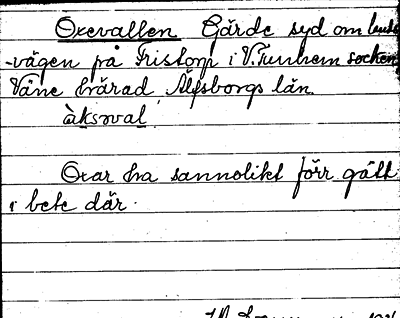 Oxevallen Gärde syd om lands
-vägen på Tristorp i V. Tunhem socken
Väne härad, Älfsborgs län.
àksəval
Oxar ha sannolikt förr gått
i bete där.